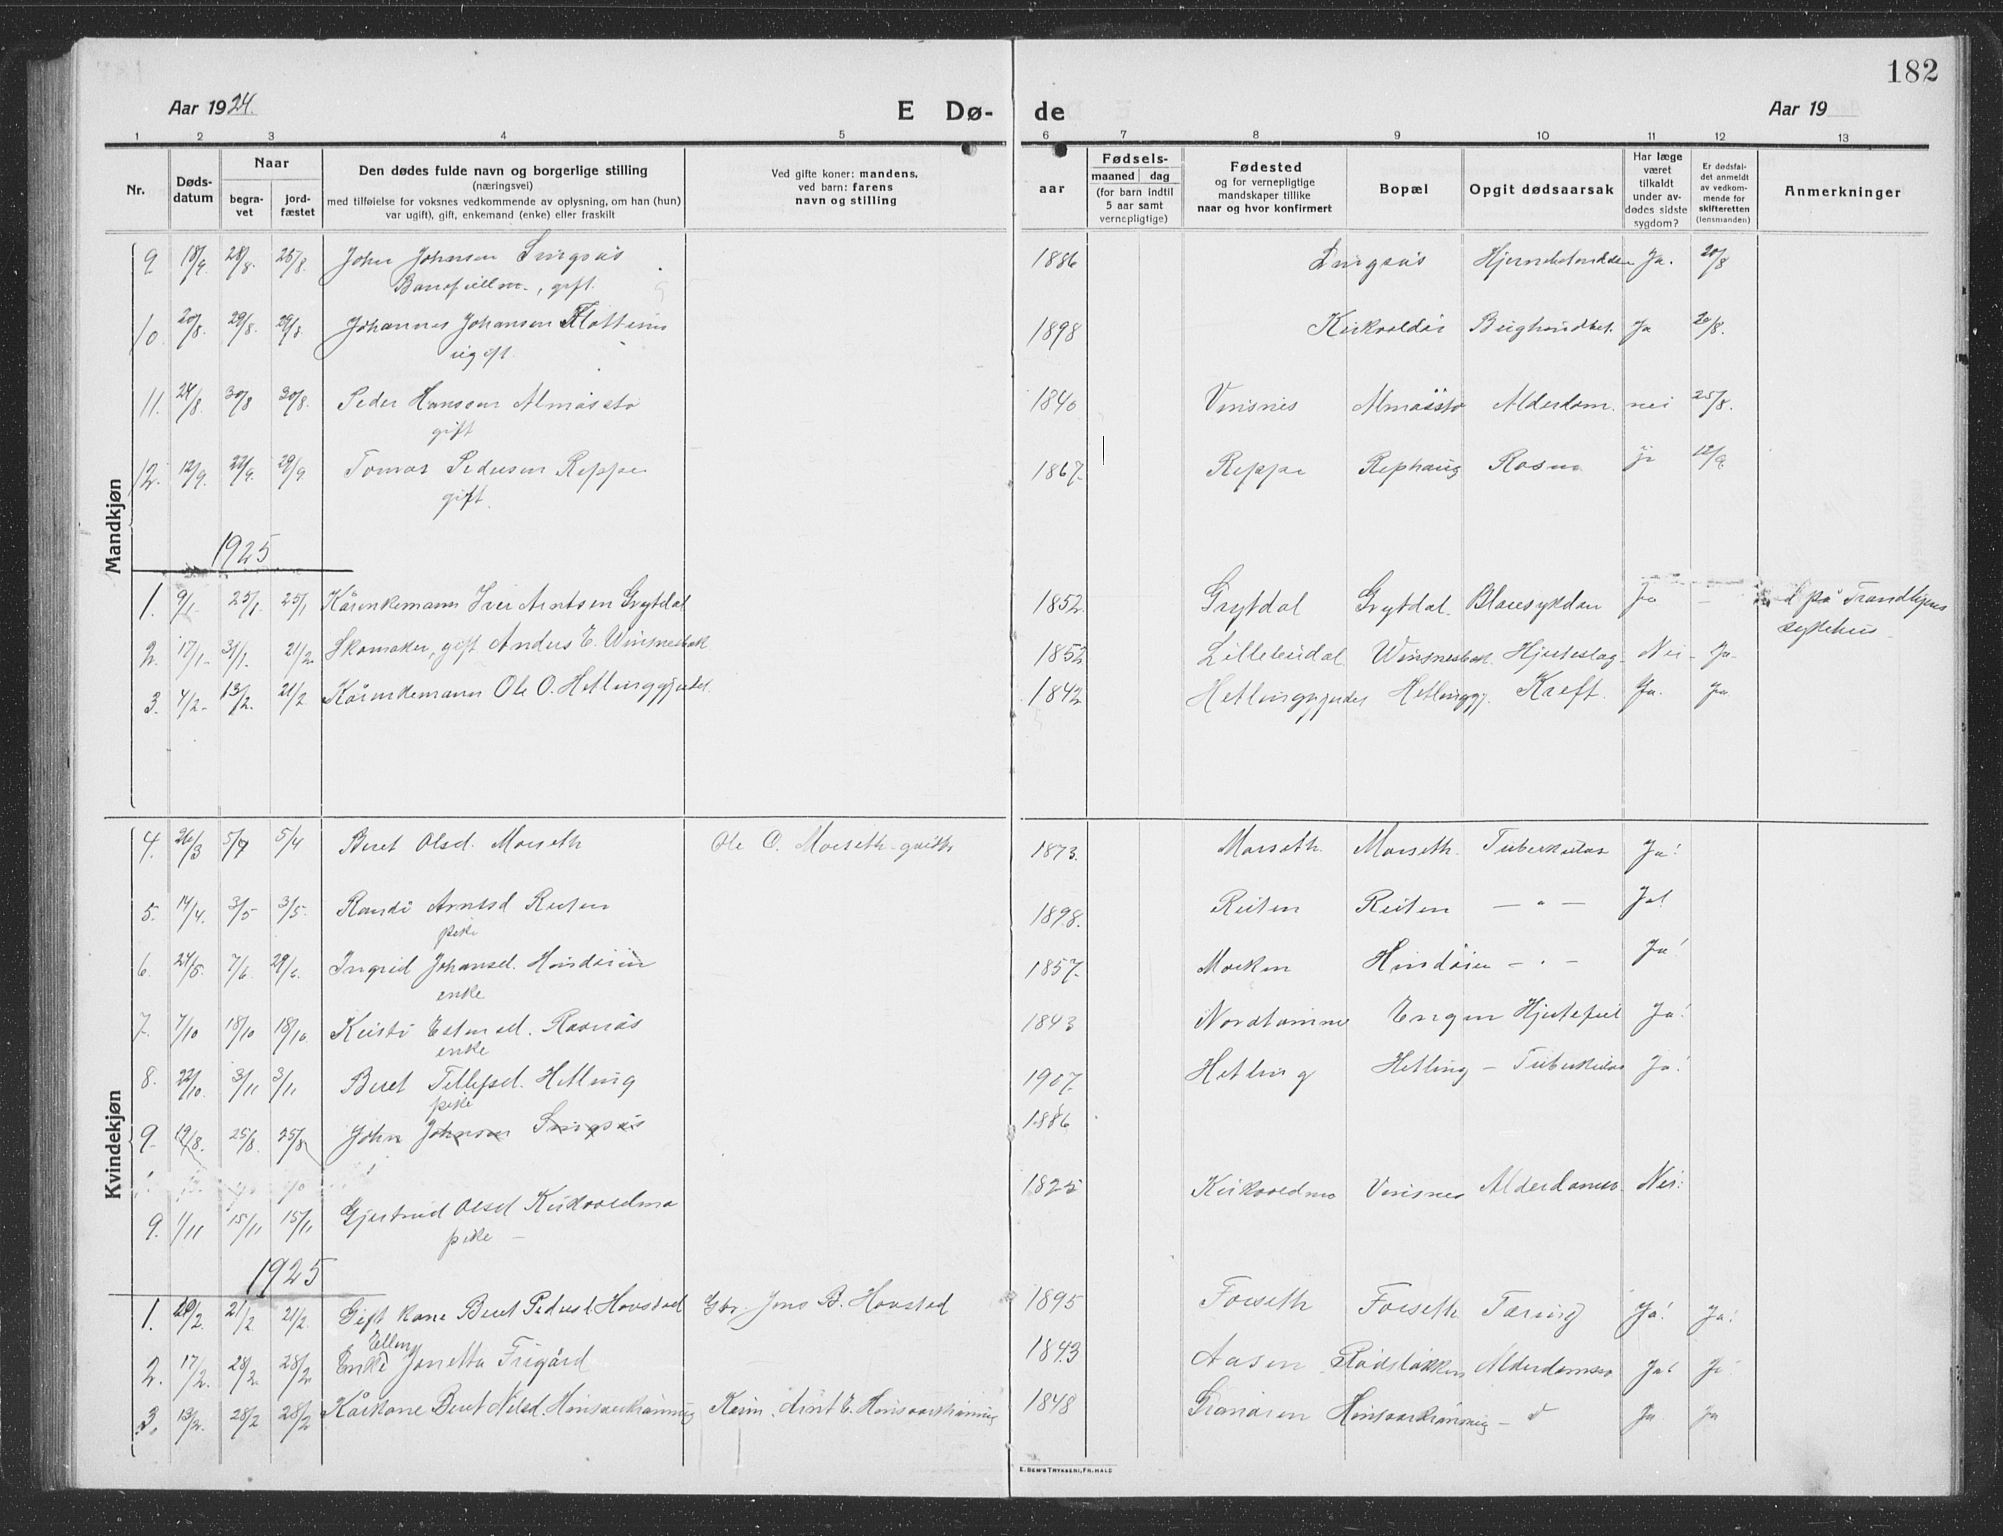 182
Aar 1924.
E Dø-
de
Aar 19
1 2 3 4 5 6 7 8 9 10 11 12 13
Nr.
Døds-
datum
Naar
begra-
vet
jord-
fæstet
Den dødes fulde navn og borgerlige stilling
(næringsvei)
med tilføielse for voksnes vedkommende av oplysning, om han (hun)
var ugift), gift, enkemand (enke) eller fraskilt
Ved gifte koner: mandens,
ved barn: farens
navn og stilling
aar
Fødsels-
maaned dag
(for barn indtil
5 aar samt
vernepligtige)
Fødested
og for vernepligtige
mandskaper tillike
naar og hvor konfirmert
Bopæl
Opgit dødsaarsak
Har læge
været
tilkaldt
under av-
dødes sidste
sygdom?
Er dødsfal-
det anmeldt
av vedkom-
mende for
skifteretten
(lensmanden)
Anmerkninger
Mandkjøn
9 18/9 28/8. 25/8. John Johnsen Singsås 1886 Singsås Ja. 20/8
gift.
10. 20/8. 29/8. 29/8 Johannes Johansen 1898 Ja 20/8.
ugift.
11. 24/8. 30/8 30/8. Peder Hanssen Almåsstø 1840 Vinsnes Almåsstø Alderdom. nei 25/8.
gift
12. 12/9. 22/9. 29/9 Tomas Pedersen Reppe 1867. Reppe Rephaug Rosen ja 12/9.
gift.
1925
1. 9/1. 25/1. 25/1 Kårenkemann Iver Arntsen Grytdal 1852. Grytdal Grytdal. Blæresykdom Ja – d på Trondhjems
sykehus
2. 17/1. 31/1. 21/2 Skomaker, gift Anders E. Winsnesbak 1852 Lilleeidal Winsnesbak. Hjerteslag – Nei – Ja
3. 4/2. 13/2. 21/2 Kårenkemann Ole O. Hetlinggjerdet. 1842 Hetlinggjerdet Hetlinggj. Kreft. Ja. Ja
Kvindekjøn
4. 26/3 5/4 5/4 Beret Olsd. Morseth Ole O. Morseth 1873. Morseth. Morseth. Tuberkulos Ja!
5. 14/4. 3/5 3/5. Randi Arntsd Reiten 1898. Reiten Reiten — " — Ja!
pike
6. 24/5. 7/6. 29/6 Ingrid Johansd. 1857. Moeken — " — Ja!
enke
7. 7/10 18/10 18/10. Kirsti Estensd. Ramsås 1843 Nordtømme Engen Hjertefeil Ja!
enke
8. 22/10. 3/11 3/11 Beret Tellefsd. Hetling 1907. Hetling Hetling – Tuberkulos Ja!
pike
9. 19/8. 25/8 25/8 John Johnsen Singsås 1886
9. 1/11 15/11 15/11 Gjertrud Olsd Kirkvoldmo 1825 Kirkvoldmo Vinsnes Alderdomssv. Nei.
pike –
1925
1. 20/2. 21/2 21/2. Gift kone Beret Pedersd. Hovstad Gbr. Jens B. Hovstad 1895 Forseth Forseth Tæring Ja! Ja!
Elling
2. 17/2. 28/2. 28/2. Enke Jonetta Frigård 1843 Aasen Rødsløkken Alderdomssv Ja! Ja
3. 13/2. 28/2 28/2 Kårkone Beret Nilsd. Hinsverkrønning Kårm. Arnt E. Hinsverkrønning 1848 Granøien Hinsverkrønning – d Ja Ja
E. SEM'S TRYKKERI, FR.HALD